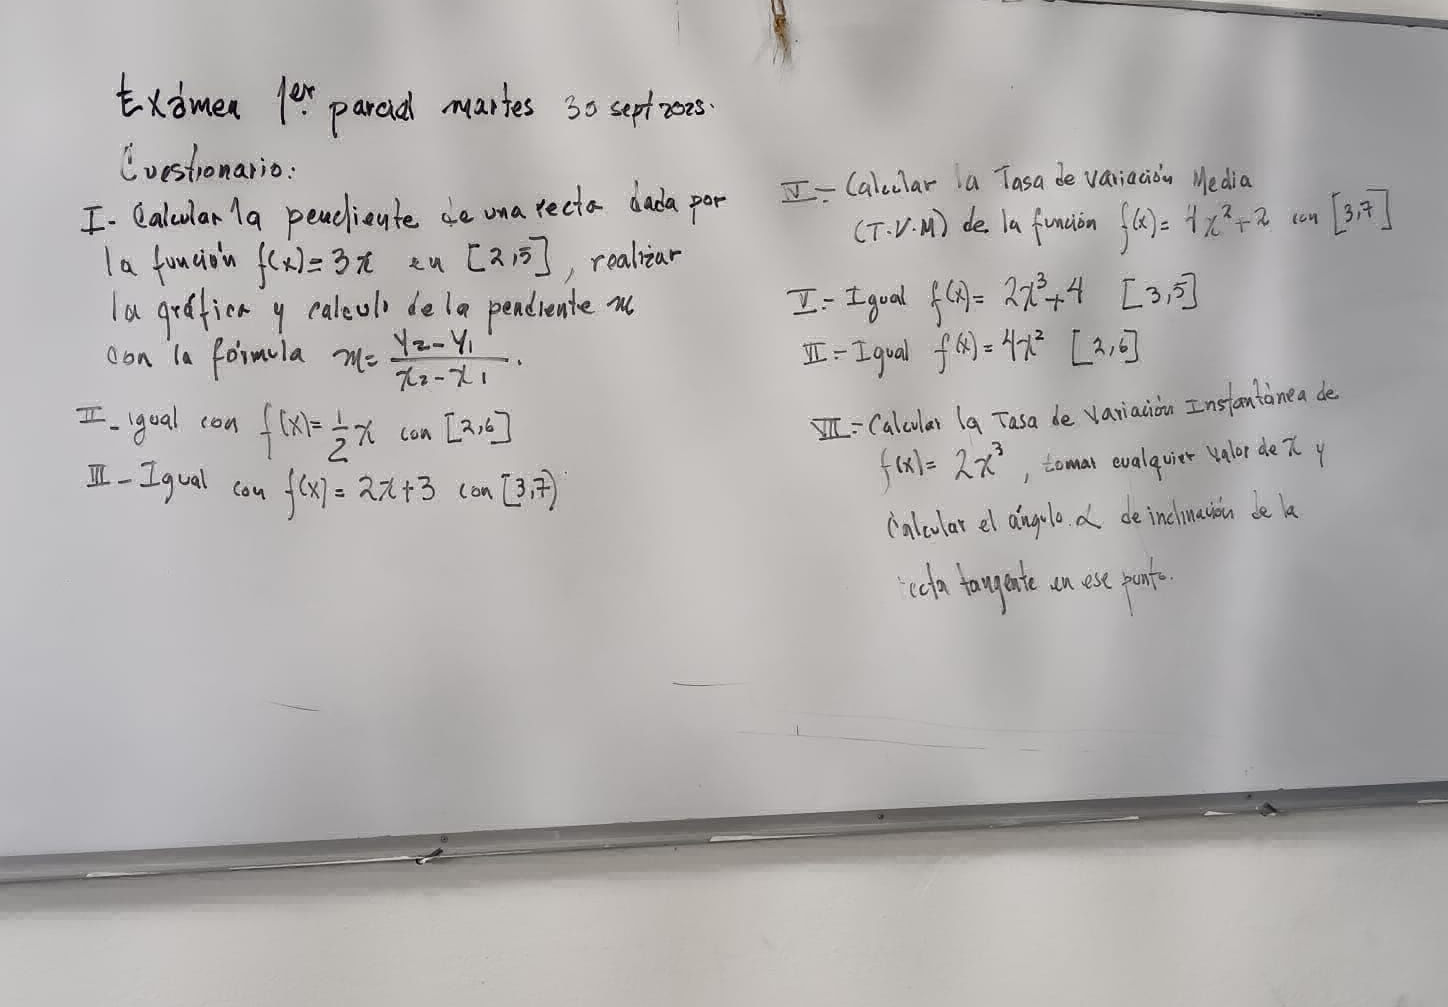 Exámen 1er. parcial martes 30 sept 2025.
Cuestionario:
I- Calcular la pendiente de una recta dada por
la función f(x)= 3x en [2,5], realizar
la gráfica y calculo de la pendiente m
con la fórmula m= y2-y1/x2-x1.
II- igual con f(x)= 1/2 x con [2,6]
III- Igual con f(x)= 2x+3 con [3,7)
IV- Calcular la Tasa de variación Media
(T.V.M) de la función f(x)= 4x²+2 con [3,7]
V.- Igual f(x)= 2x³+4 [3,5]
VI- Igual f(x)= 4x² [2,6]
VII.- Calcular la Tasa de Variación Instantánea de
f(x)= 2x³, tomar cualquier valor de x y
Calcular el ángulo α de inclinación de la
recta tangente en ese punto.